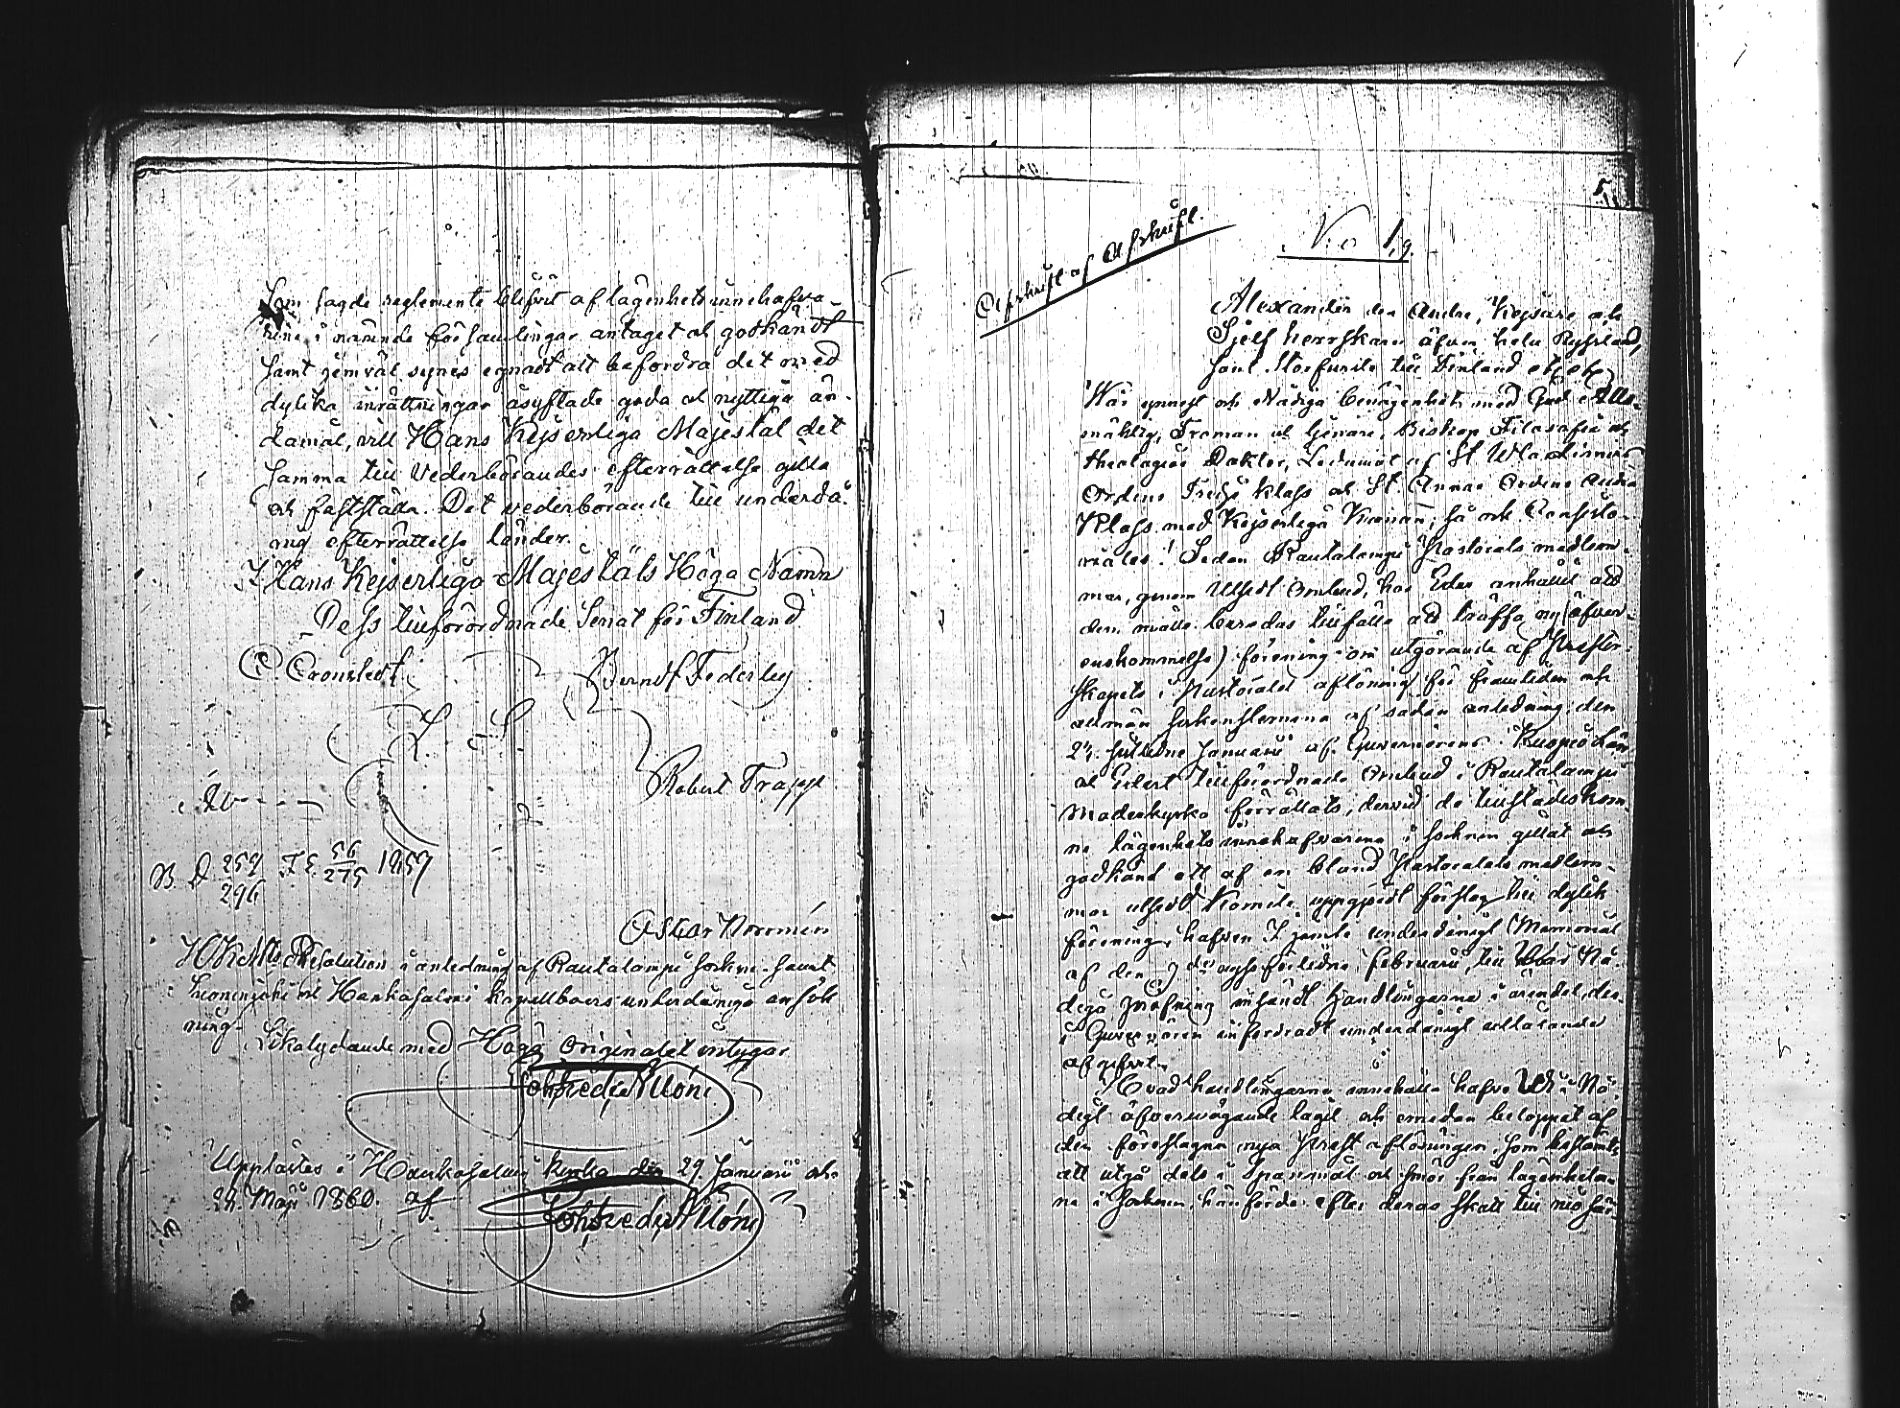 Som sagde reglemente blifvit af lägenhetsinnehafva-
rine i nämnde församlingar antaget och godkändt
samt jemväl synes egnadt att befordra det med
dylika inrättningar åsyftade goda och nyttiga än-
damål, vill Hans Kejserliga Majestät det
samma till Vederbörandes efterrättelse gilla
och fastställa. Det vederbörande till underdå-
nig efterrättelse länder.
I Hans Kejserliga Majestäts Höga Namn
Dess tillförordnade Senat för Finland
C. Cronstedt Berndt Federley
L. S.
Robert Trapp
B. D. 259 F. E. 56 1857
296 275
Oskar Norrmén
H K M:ts Resolution i anledning af Rautalampi socken- samt
och Hankasalmi kapellboers underdåniga ansök-
ning.
Likalydande med Höga Originalet intygar
Joh Fredr Alloni
Upplästes i Hankasalmi kyrka den 29 Januari och
28 Maji 1860. af
Joh Fredr Alloni
5
No 19.
Afskrift af Afskrift.
Alexander den Andre, Kejsare och
Sjelfherrskare öfver hela Ryssland,
samt Storfurste till Finland etc etc
Wår ynnest och Nådiga benägenhet med Gud Alls-
mäktig, Troman och tjenare, Biskop, Filosofie och
theologiae Doktor, Ledamot af St Wladimirs
Ordens Tredje klass och St. Annae Ordens Andra
Klass med Kejserliga Kronan, så och Consisto-
riales! Sedan Rautalampi Pastorats medlem-
mar, genom Utsedt Ombud, hos Eder anhållit att
dem måtte beredas tillfälle att träffa ny (öfver-
enskommelse) förening om utgörande af Prester-
skapets i Pastoratet aflöning för framtiden och
allmän sockenstemma af sådan anledning, den
27. sistledne Januarii af Guvernörens i Kuopio Län
och Edert tillförordnade Ombud i Rautalampi
Moderkyrka förrättats, dervid de tillstädeskom-
ne lägenhetsinnehafvarena i socknen gillat och
godkänd ett af en bland Pastoratets medlem-
mar utsedd Komité uppgjordt förslag till dylik
förening, hafven I jemte underdånigt Memorial
af den 7de nyssförledne Februarii, till Wår Nå-
diga pröfning insändt handlingarne i ärendet, der-
i Guvernören infordradt underdånigt utlåtande
afgifvit.
Hvad handlingarne innehålla hafve Wi i Nå-
digt öfvervägande tagit och emedan beloppet af
den föreslagna nya Prestaflöningen, som bestämts
att utgå dels i Spanmål och smör från lägenheter-
ne i Socknen, hänförde efter deras skatt till nio sär-